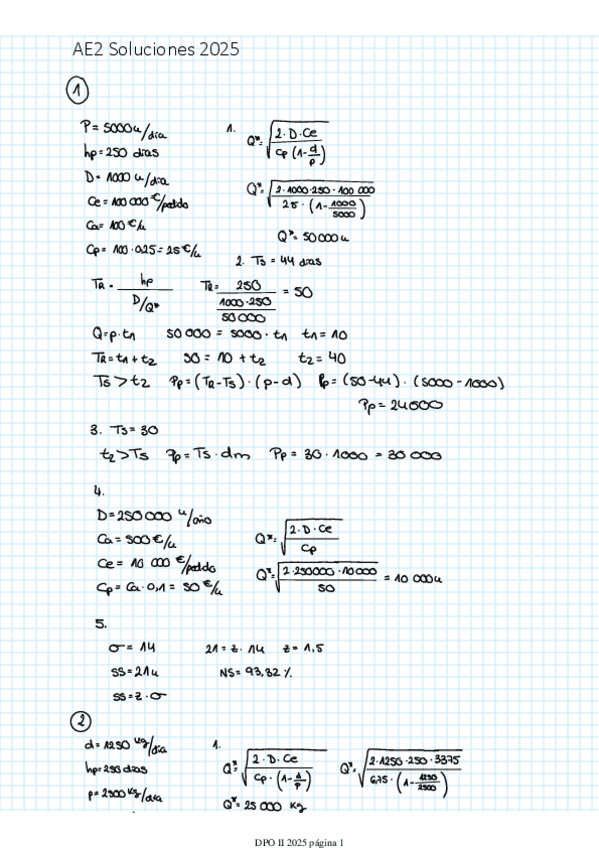 AE2 Soluciones 2025
1
P = 5000 u/día
hp = 250 días
D = 1000 u/día
Ce = 100 000 €/pedido
Ca = 100 €/u
Cp = 100 · 0.25 = 25 €/u
1. Q* = √(2 · D · Ce / Cp (1 - d/p))
Q* = √(2 · 1000 · 250 · 100 000 / 25 · (1 - 1000/5000))
Q* = 50 000 u
2. Ts = 44 días
TR = hp / D/Q*
TR = 250 / (1000 · 250 / 50 000) = 50
Q = p · t1 50 000 = 5000 · t1 t1 = 10
TR = t1 + t2 50 = 10 + t2 t2 = 40
Ts > t2 Pp = (TR - Ts) · (p - d) Pp = (50 - 44) · (5000 - 1000)
Pp = 24000
3. Ts = 30
t2 > Ts Pp = Ts · dm Pp = 30 · 1000 = 30 000
4.
D = 250 000 u/año
Ca = 500 €/u
Ce = 10 000 €/pedido
Cp = Ca · 0,1 = 50 €/u
Q* = √(2 · D · Ce / Cp)
Q* = √(2 · 250000 · 10 000 / 50) = 10 000 u
5.
σ = 14 21 = z · 14 z = 1,5
SS = 21 u NS = 93,32 %
SS = z · σ
2
d = 1250 kg/día
hp = 250 días
p = 2500 kg/día
1. Q* = √(2 · D · Ce / Cp · (1 - d/p)) Q* = √(2 · 1250 · 250 · 3375 / 6,75 · (1 - 1250/2500))
Q* = 25 000 kg
DPO II 2025 página 1